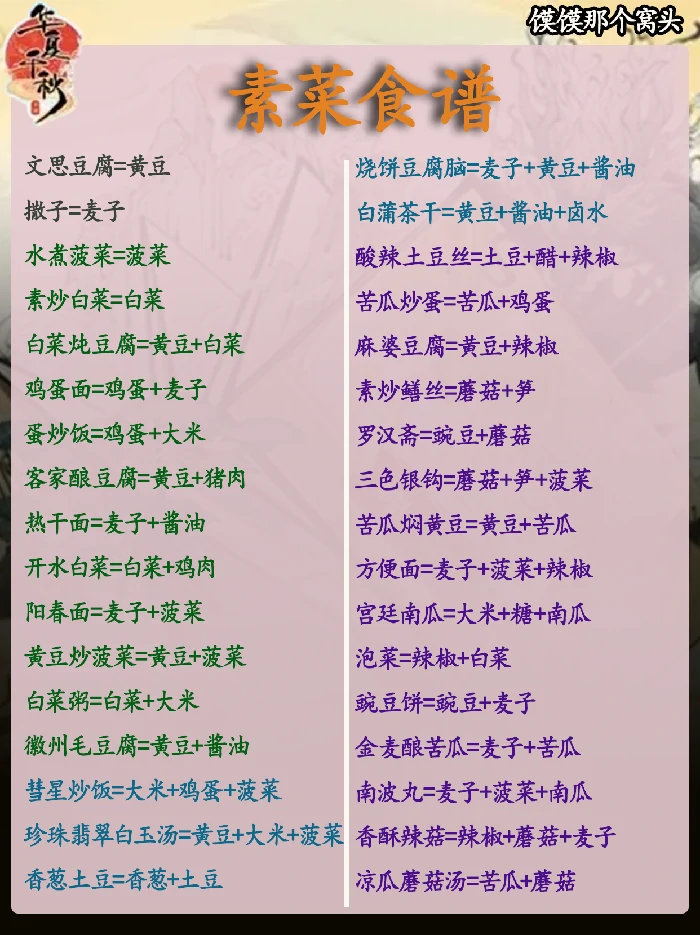 华夏千秋
馍馍那个窝头
素菜食谱
文思豆腐=黄豆
撒子=麦子
水煮菠菜=菠菜
素炒白菜=白菜
白菜炖豆腐=黄豆+白菜
鸡蛋面=鸡蛋+麦子
蛋炒饭=鸡蛋+大米
客家酿豆腐=黄豆+猪肉
热干面=麦子+酱油
开水白菜=白菜+鸡肉
阳春面=麦子+菠菜
黄豆炒菠菜=黄豆+菠菜
白菜粥=白菜+大米
徽州毛豆腐=黄豆+酱油
彗星炒饭=大米+鸡蛋+菠菜
珍珠翡翠白玉汤=黄豆+大米+菠菜
香葱土豆=香葱+土豆
烧饼豆腐脑=麦子+黄豆+酱油
白蒲茶干=黄豆+酱油+卤水
酸辣土豆丝=土豆+醋+辣椒
苦瓜炒蛋=苦瓜+鸡蛋
麻婆豆腐=黄豆+辣椒
素炒鳝丝=蘑菇+笋
罗汉斋=豌豆+蘑菇
三色银钩=蘑菇+笋+菠菜
苦瓜焖黄豆=黄豆+苦瓜
方便面=麦子+菠菜+辣椒
宫廷南瓜=大米+糖+南瓜
泡菜=辣椒+白菜
豌豆饼=豌豆+麦子
金麦酿苦瓜=麦子+苦瓜
南波丸=麦子+菠菜+南瓜
香酥辣菇=辣椒+蘑菇+麦子
凉瓜蘑菇汤=苦瓜+蘑菇